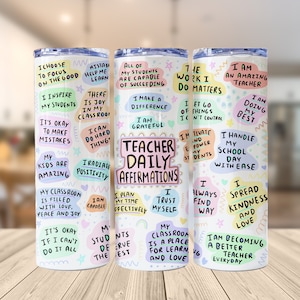 I CHOOSE
TO FOCUS
ON THE GOOD
MISTAKES
HELP ME
LEARN
I INSPIRE
MY STUDENTS
THERE
IS JOY
IN MY
CLASSROOM
IT'S OKAY
TO MAKE
MISTAKES
I CAN
DO HARD
THINGS
MY
KIDS ARE
AMAZING
I RADIATE
POSITIVITY
MY CLASSROOM
IS FILLED
WITH LOVE,
PEACE AND JOY
I AM
CAPABLE
IT'S OKAY
IF I CAN'T
DO IT ALL
MY
STUD
DE
THE
ALL OF
MY STUDENTS
ARE CAPABLE
OF SUCCEEDING
I MAKE A
DIFFERENCE
I AM
GRATEFUL
TEACHER
DAILY
AFFIRMATIONS
I PLAN
MY TIME
EFFECTIVELY
I
TRUST
MYSELF
MY
CLASSROOM
IS A PLACE
FOR LEARN
AND LOVE
THE
WORK I
DO MATTERS
I AM
AN AMAZING
TEACHER
I LET GO
OF THINGS
I AM
DOING
MY
BEST
I HANDLE
MY
SCHOOL
DAY
WITH EASE
I
ALWAYS
FIND
WAY
I
SPREAD
KINDNESS
AND
LOVE
I AM BECOMING
A BETTER
TEACHER
EVERYDAY